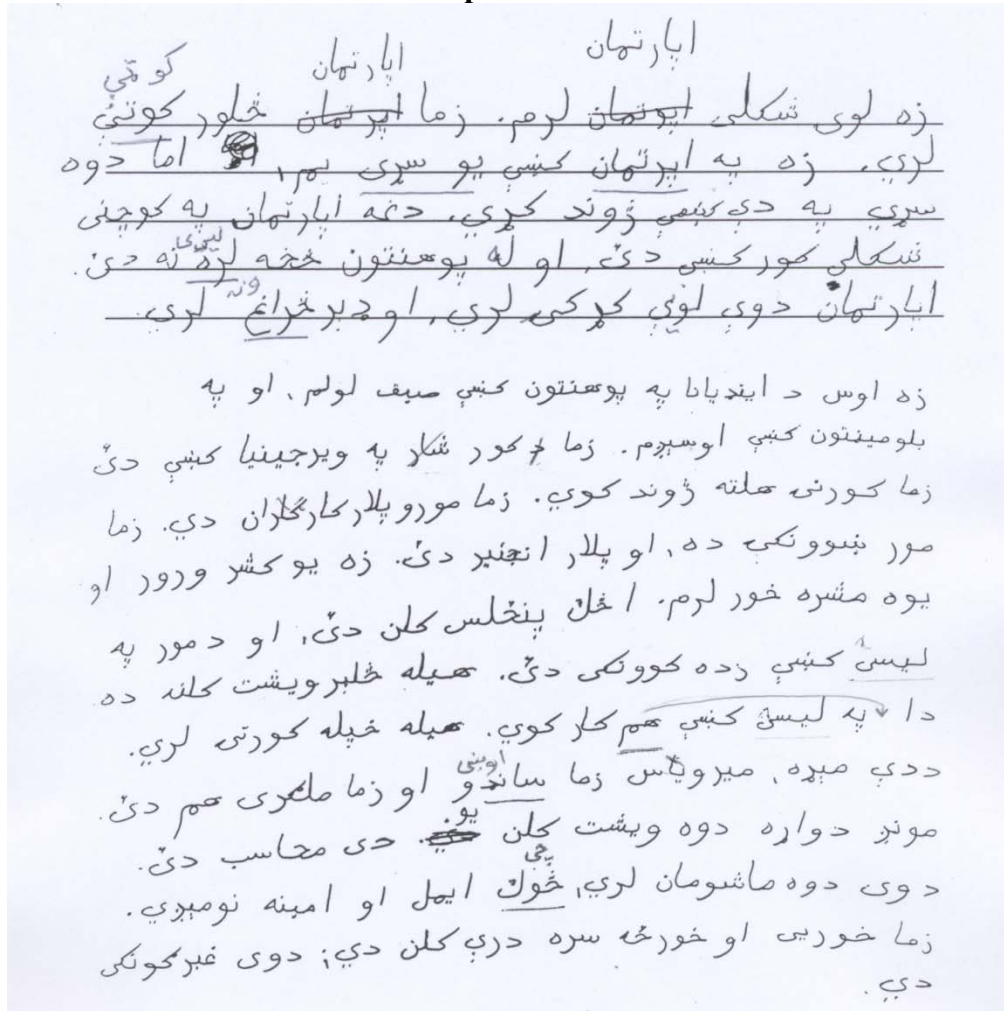 اپارتمان
اپارتمان
کوټې
زه لوی ښکلی اپوتمان لرم. زما اپرتمان څلور کوتې
لري. زه په اپرتمان کښې یو سړی یم، اما دوه
سړي په دې کښې ژوند کړي. دغه اپارتمان په کوچنی
لیرې
ښکلي کور کښې دئ. او له پوهنتون څخه لره نه دئ.
ونه
اپارتمان دوې لوې کړکۍ لري. او ډېر څراغ لري.
زه اوس د اینډیانا په پوهنتون کښې صیف لولم. او په
بلومینتون کښې اوسېږم. زما کور ښار په ویرجینیا کښې دئ
زما کورنۍ هلته ژوند کوي. زما مورو پلار کارګاران دي. زما
مور ښوونکې ده. او پلار انجنیر دئ. زه یو کشر ورور او
یوه مشره خور لرم. اڅک پنځلس کلن دئ. او د مور په
لیسه کښې زده کوونکی دئ. هیله څلېرویشت کلنه ده
دا په لیسې کښې هم کار کوي. هیله خپله کورتۍ لري.
اوښی
ددې مېړه، میرویس زما ساندو او زما ملګری هم دئ.
یو.
مونږ دواړه دوه ویشت کلن دي. دی محاسب دئ.
چې
دوی دوه ماشومان لري، څوک ایمل او امینه نومېږي.
زما خوریی او خورځه سره درې کلن دي; دوی غبرګونکی
دي.